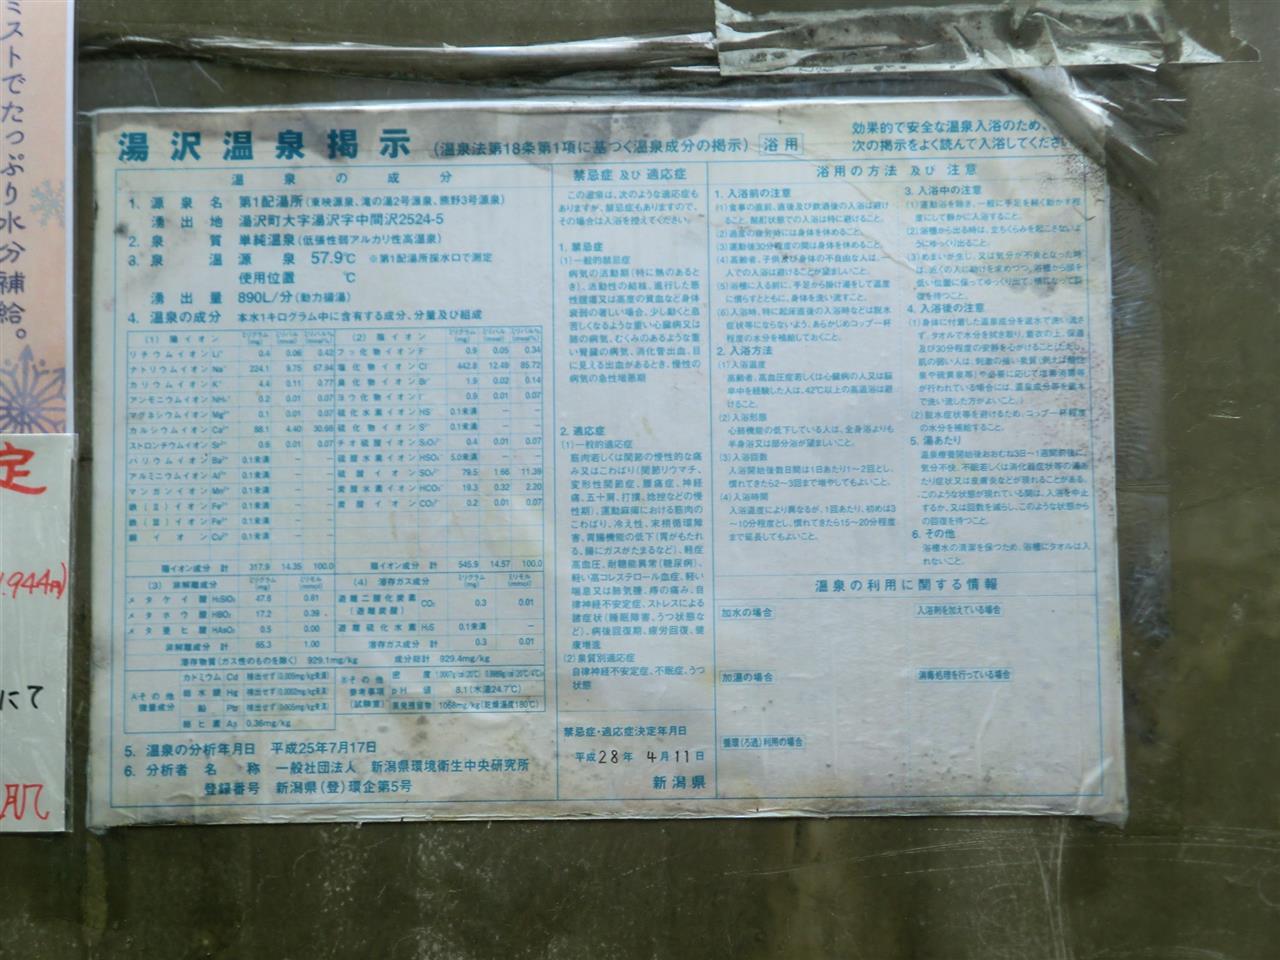 ミストでたっぷり水分補給。
定
944円)
にて
肌
湯沢温泉掲示 (温泉法第18条第1項に基づく温泉成分の掲示) 浴用
効果的で安全な温泉入浴のため、
次の掲示をよく読んで入浴してくださ
温泉の成分
1. 源泉名 第1配湯所(東映源泉、滝の湯2号源泉、熊野3号源泉)
湧出地 湯沢町大字湯沢字中間沢2524-5
2. 泉質 単純温泉(低張性弱アルカリ性高温泉)
3. 泉温 源泉 57.9℃ ※第1配湯所採水口で測定
使用位置 ℃
湧出量 890L/分(動力揚湯)
4. 温泉の成分 本水1キログラム中に含有する成分、分量及び組成
(1) 陽イオン ミリグラム(mg) ミリバル(mval) ミリバル%(mval%)
リチウムイオン Li⁺ 0.4 0.06 0.42
ナトリウムイオン Na⁺ 224.1 9.75 67.94
カリウムイオン K⁺ 4.4 0.11 0.77
アンモニウムイオン NH₄⁺ 0.2 0.01 0.07
マグネシウムイオン Mg²⁺ 0.1 0.01 0.07
カルシウムイオン Ca²⁺ 88.1 4.40 30.66
ストロンチウムイオン Sr²⁺ 0.6 0.01 0.07
バリウムイオン Ba²⁺ 0.1未満
アルミニウムイオン Al³⁺ 0.1未満
マンガンイオン Mn²⁺ 0.1未満
鉄(Ⅱ)イオン Fe²⁺ 0.1未満
鉄(Ⅲ)イオン Fe³⁺ 0.1未満
銅イオン Cu²⁺ 0.1未満
陽イオン成分 計 317.9 14.35 100.0
(2) 陰イオン ミリグラム(mg) ミリバル(mval) ミリバル%(mval%)
フッ化物イオン F⁻ 0.9 0.05 0.34
塩化物イオン Cl⁻ 442.8 12.49 85.72
臭化物イオン Br⁻ 1.9 0.02 0.14
ヨウ化物イオン I⁻ 0.9 0.01 0.07
硫化水素イオン HS⁻ 0.1未満 — —
硫化物イオン S²⁻ 0.1未満 — —
チオ硫酸イオン S₂O₃²⁻ 0.4 0.01 0.07
硫酸水素イオン HSO₄⁻ 5.0未満 — —
硫酸イオン SO₄²⁻ 79.5 1.66 11.39
炭酸水素イオン HCO₃⁻ 19.3 0.32 2.20
炭酸イオン CO₃²⁻ 0.2 0.01 0.07
陰イオン成分 計 545.9 14.57 100.0
(3) 非解離成分 ミリグラム(mg) ミリモル(mmol)
メタケイ酸 H₂SiO₃ 47.6 0.61
メタホウ酸 HBO₂ 17.2 0.39
メタ亜ヒ酸 HAsO₂ 0.5 0.00
非解離成分 計 65.3 1.00
(4) 溶存ガス成分 ミリグラム(mg) ミリモル(mmol)
遊離二酸化炭素(遊離炭酸) CO₂ 0.3 0.01
遊離硫化水素 H₂S 0.1未満 —
溶存ガス成分 計 0.3 0.01
溶存物質(ガス性のものを除く) 929.1mg/kg 成分総計 929.4mg/kg
A:その他微量成分
カドミウム Cd 検出せず(0.005mg/kg未満)
総水銀 Hg 検出せず(0.0002mg/kg未満)
鉛 Pb 検出せず(0.005mg/kg未満)
総ヒ素 As 0.36mg/kg
B:その他参考事項(試験室)
密度
pH値 8.1(水温24.7℃)
蒸発残留物 1068mg/kg(乾燥温度180℃)
5. 温泉の分析年月日 平成25年7月17日
6. 分析者 名称 一般社団法人 新潟県環境衛生中央研究所
登録番号 新潟県(登)環企第5号
禁忌症及び適応症
この温泉は、次のような適応症も
ありますが、禁忌症もありますので、
その場合は入浴を控えてください。
1. 禁忌症
(1)一般的禁忌症
病気の活動期(特に熱のあると
き)、活動性の結核、進行した悪
性腫瘍又は高度の貧血など身体
衰弱の著しい場合、少し動くと息
苦しくなるような重い心臓病又は
肺の病気、むくみのあるような重
い腎臓の病気、消化管出血、目
に見える出血があるとき、慢性の
病気の急性増悪期
2. 適応症
(1)一般的適応症
筋肉若しくは関節の慢性的な痛
み又はこわばり(関節リウマチ、
変形性関節症、腰痛症、神経
痛、五十肩、打撲、捻挫などの慢
性期)、運動麻痺における筋肉の
こわばり、冷え性、末梢循環障
害、胃腸機能の低下(胃がもたれ
る、腸にガスがたまるなど)、軽症
高血圧、耐糖能異常(糖尿病)、
軽い高コレステロール血症、軽い
喘息又は肺気腫、痔の痛み、自
律神経不安定症、ストレスによる
諸症状(睡眠障害、うつ状態な
ど)、病後回復期、疲労回復、健
康増進
(2)泉質別適応症
自律神経不安定症、不眠症、うつ
状態
禁忌症・適応症決定年月日
平成28年4月11日
新潟県
浴用の方法及び注意
1. 入浴前の注意
(1)食事の直前、直後及び飲酒後の入浴は避け
ること。酩酊状態での入浴は特に避けること。
(2)過度の疲労時には身体を休めること。
(3)運動後30分程度の間は身体を休めること。
(4)高齢者、子供及び身体の不自由な人は、1
人での入浴は避けることが望ましいこと。
(5)浴槽に入る前に、手足から掛け湯をして温度
に慣らすとともに、身体を洗い流すこと。
(6)入浴時、特に起床直後の入浴時などは脱水
症状等にならないよう、あらかじめコップ一杯
程度の水分を補給しておくこと。
2. 入浴方法
(1)入浴温度
高齢者、高血圧症若しくは心臓病の人又は脳
卒中を経験した人は、42℃以上の高温浴は避
けること。
(2)入浴形態
心肺機能の低下している人は、全身浴よりも
半身浴又は部分浴が望ましいこと。
(3)入浴回数
入浴開始後数日間は1日あたり1~2回とし、
慣れてきたら2~3回まで増やしてもよいこと。
(4)入浴時間
入浴温度により異なるが、1回あたり、初めは3
~10分程度とし、慣れてきたら15~20分程度
まで延長してもよいこと。
3. 入浴中の注意
(1)運動浴を除き、一般に手足を軽く動かす程
度にして静かに入浴すること。
(2)浴槽から出る時は、立ちくらみを起こさないよ
うにゆっくり出ること。
(3)めまいが生じ、又は気分が不良となった時
は、近くの人に助けを求めつつ、浴槽から頭を
低い位置に保ってゆっくり出て、横になって回
復を待つこと。
4. 入浴後の注意
(1)身体に付着した温泉成分を温水で洗い流さ
ず、タオルで水分を拭き取り、着衣の上、保温
及び30分程度の安静を心がけること(ただし、
肌の弱い人は、刺激の強い泉質(例えば酸性
泉や硫黄泉等)や必要に応じて塩素消毒等
が行われている場合には、温泉成分等を温水
で洗い流した方がよいこと。)
(2)脱水症状等を避けるため、コップ一杯程度
の水分を補給すること。
5. 湯あたり
温泉療養開始後おおむね3日~1週間前後に、
気分不快、不眠若しくは消化器症状等の湯あ
たり症状又は皮膚炎などが現れることがある。
このような状態が現れている間は、入浴を中止
するか、又は回数を減らし、このような状態から
の回復を待つこと。
6. その他
浴槽水の清潔を保つため、浴槽にタオルは入
れないこと。
温泉の利用に関する情報
加水の場合
入浴剤を加えている場合
加温の場合
消毒処理を行っている場合
循環(ろ過)利用の場合